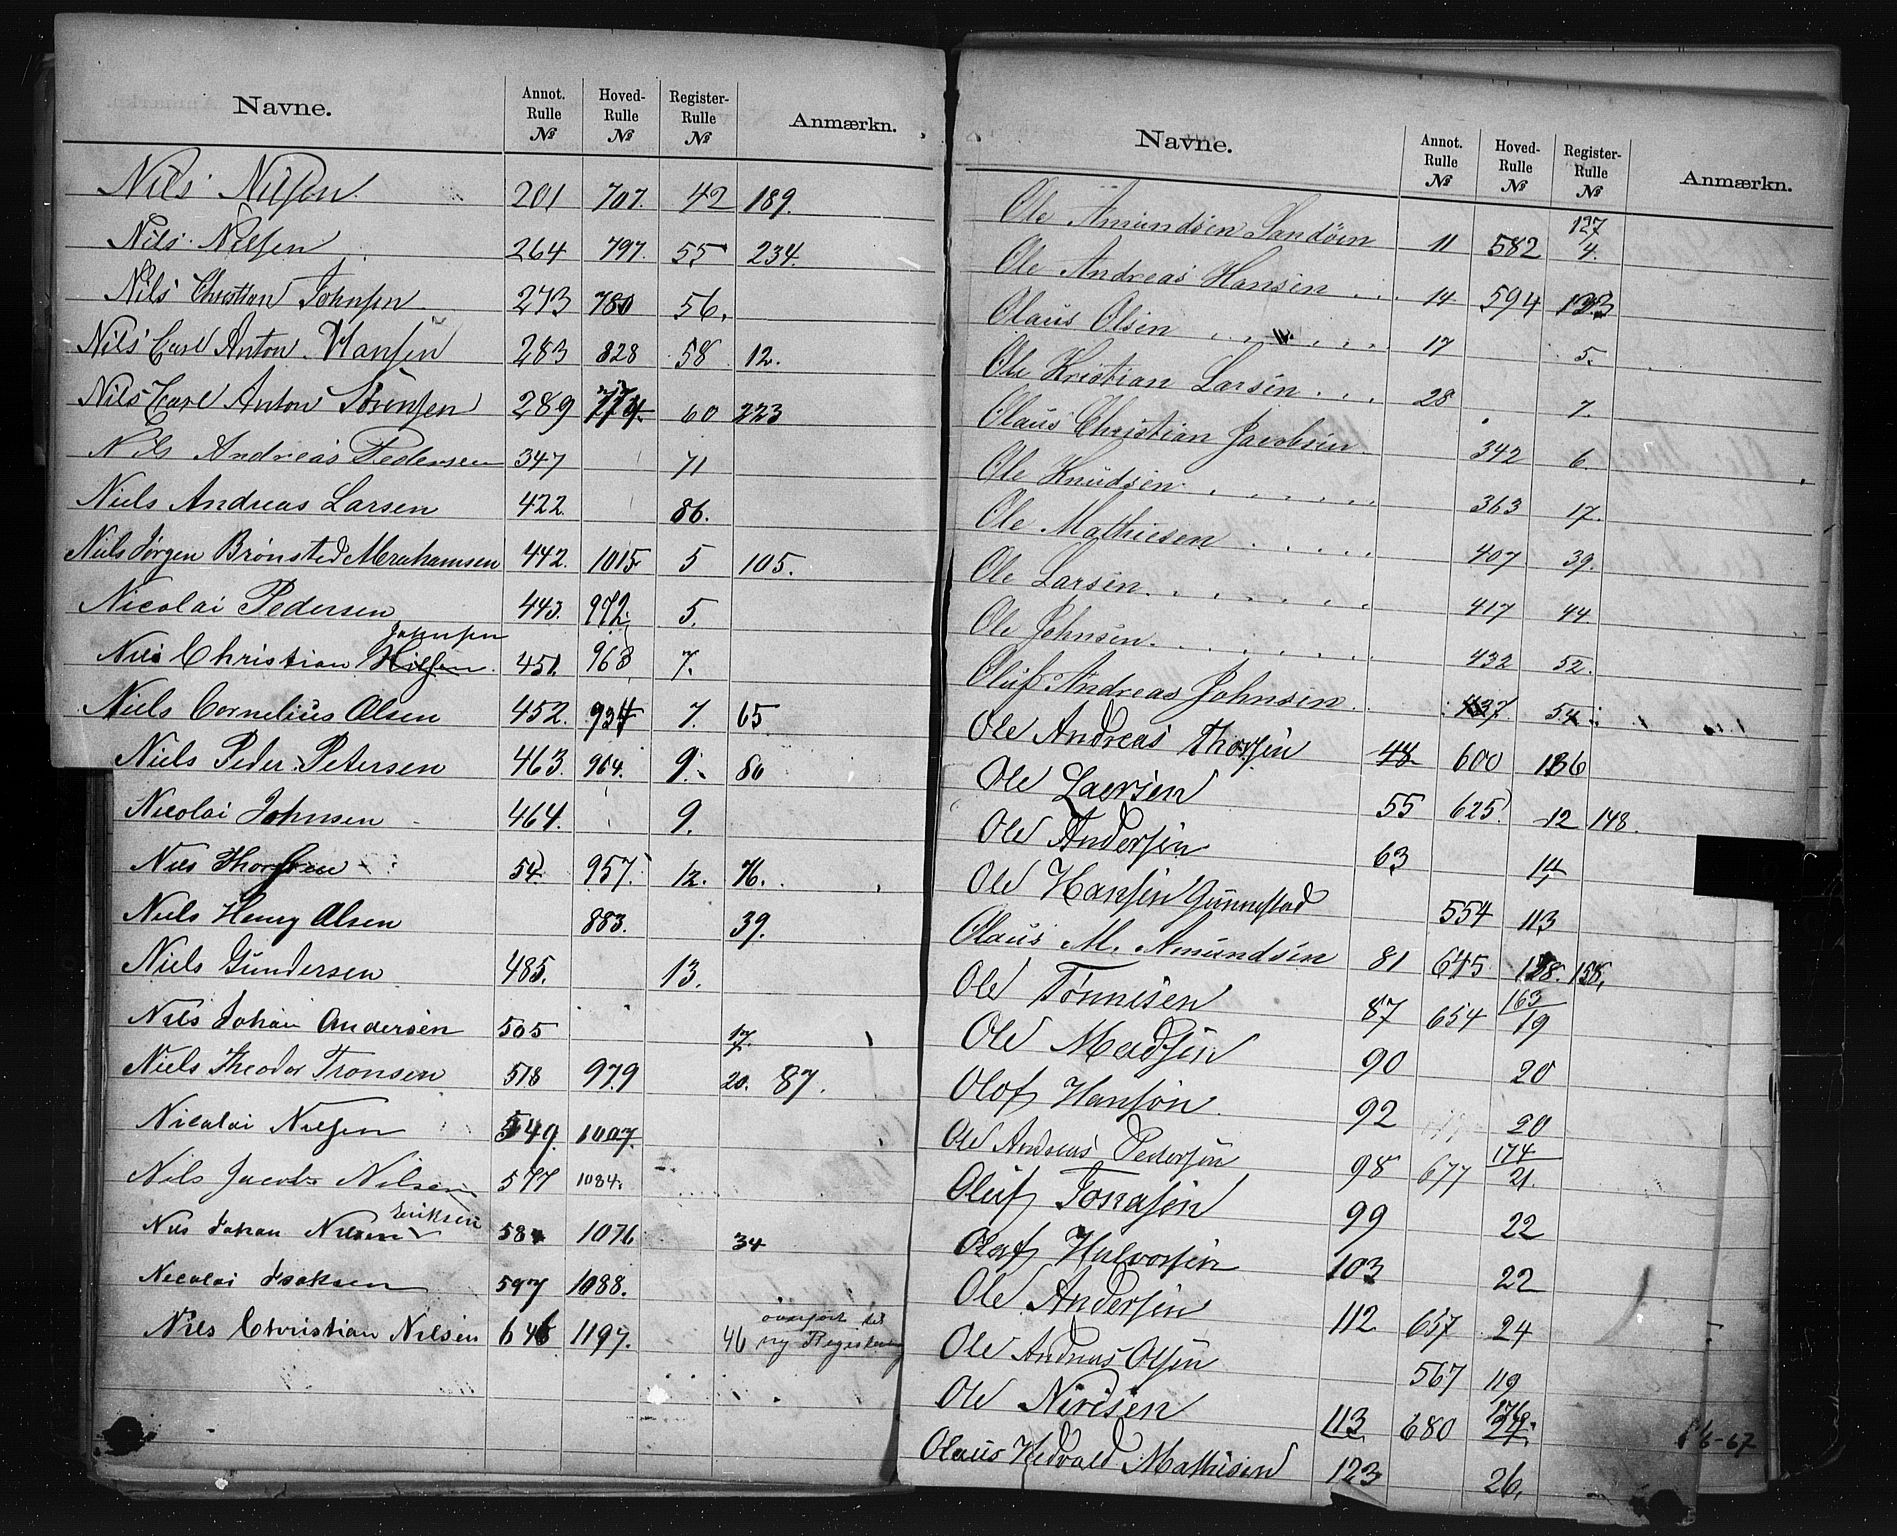 Navne. Annot. Rulle № Hoved-Rulle № Register-Rulle № Anmærkn.
Nils Nilsen 201 707. 42 189.
Nils Nilsen 264 797. 55 234.
Nils Christian Johnsen 273 780 56.
Nils Carl Anton Hansen 283 828 58 12.
Nils Carl Anton Sørensen 289 60 223
Nils Andreas Pedersen 347 71
Niels Andreas Larsen 422. 86.
Niels Jørgen Brønsted Abrahamsen 442. 1015 5 105.
Nicolai Pedersen 443. 972. 5.
Johnsen
Nils Christian Nilsen 451. 968 7.
Niels Cornelius Olsen 452. 934 7. 65
Niels Peder Petersen 463. 964. 9. 80
Nicolai Johnsen 464. 9.
Nils Thorsen 54 957. 12. 76.
Niels Henry Olsen 883. 39.
Niels Gundersen 485. 13.
Nils Johan Andersen 505 17.
Niels Theodor Tronsen 518 979 20. 87.
Nicolai Nilsen 549. 1007.
Nils Jacob Nilsen 577 1084.
Eriksen
Nils Johan Nilsen 584 1076 34
Nicolai Isaksen 597 1088.
Nils Christian Nilsen 646 1197. 46 overført til ny Registrering
Navne. Annot. Rulle № Hoved-Rulle № Register-Rulle № Anmærkn.
Ole Amundsen Sandøen 11 582 127/4.
Ole Andreas Hansen . . . 14 594 133
Olaus Olsen . . . . . . . 17 5.
Ole Kristian Larsen . . . 28 7.
Olaus Christian Jacobsen 342 6.
Ole Knudsen . . . . . . 363 17.
Ole Mathiesen . . . . . 407 39.
Ole Larsen . . . . . . . 417 44
Ole Johnsen . . . . . . . 432 52.
Oluf Andreas Johnsen . 437 54
Ole Andreas Thorsen 48 600 136
Ole Laersen 55 625 12 148.
Ole Andersen 63 14
Ole Hansen Gunnestad 554 113
Olaus M. Amundsen 81 645 158.
Ole Tønnesen 87 654 163/19
Ole Madsen 90 20
Olof Hansøn 92 20
Ole Andreas Pedersen 98 677 174/21.
Oluf Tostasen 99 22
Olaf Halvorsen 103 22
Ole Andersen 112 657 24
Ole Andreas Olsen 567 119
Ole Nirisen 113 680 176/24.
Olaus Hedvald Mathisen 123 26.